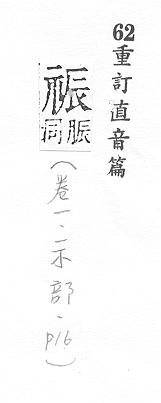 62重訂直音篇
祳
脤同
(卷一.示部.p16)